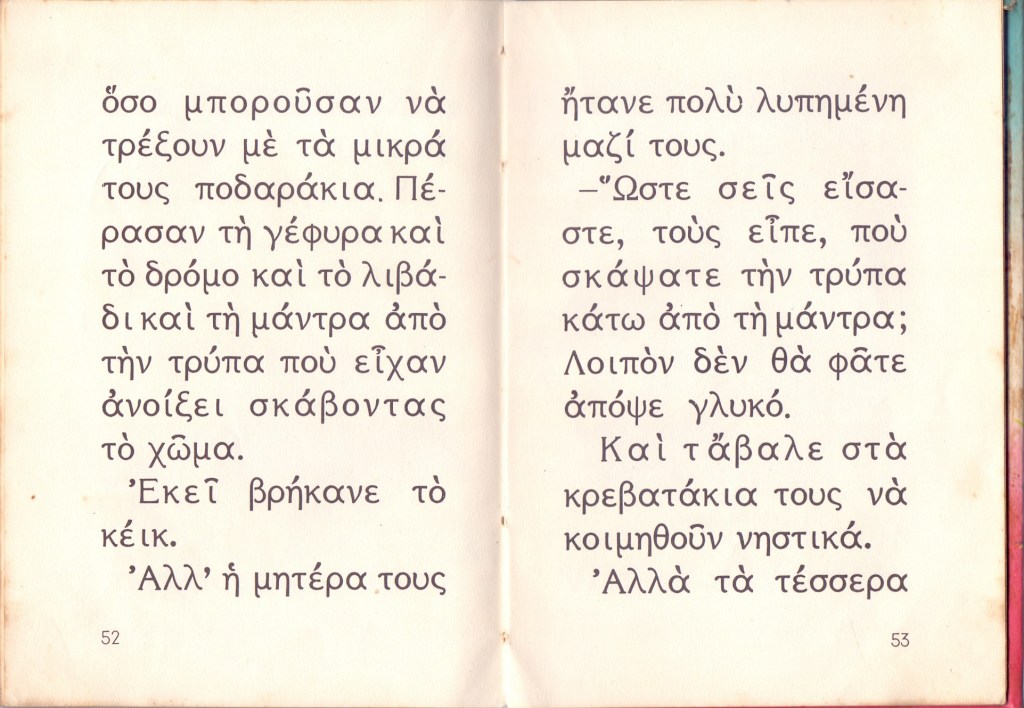 ὅσο μποροῦσαν νὰ
τρέξουν μὲ τὰ μικρά
τους ποδαράκια. Πέ-
ρασαν τὴ γέφυρα καὶ
τὸ δρόμο καὶ τὸ λιβά-
δι καὶ τὴ μάντρα ἀπὸ
τὴν τρύπα ποὺ εἶχαν
ἀνοίξει σκάβοντας
τὸ χῶμα.
Ἐκεῖ βρήκανε τὸ
κέικ.
Ἀλλ’ ἡ μητέρα τους
52
ἤτανε πολὺ λυπημένη
μαζί τους.
–Ὥστε σεῖς εἴσα-
στε, τοὺς εἶπε, ποὺ
σκάψατε τὴν τρύπα
κάτω ἀπὸ τὴ μάντρα;
Λοιπὸν δὲν θὰ φᾶτε
ἀπόψε γλυκό.
Καὶ τἄβαλε στὰ
κρεβατάκια τους νὰ
κοιμηθοῦν νηστικά.
Ἀλλὰ τὰ τέσσερα
53